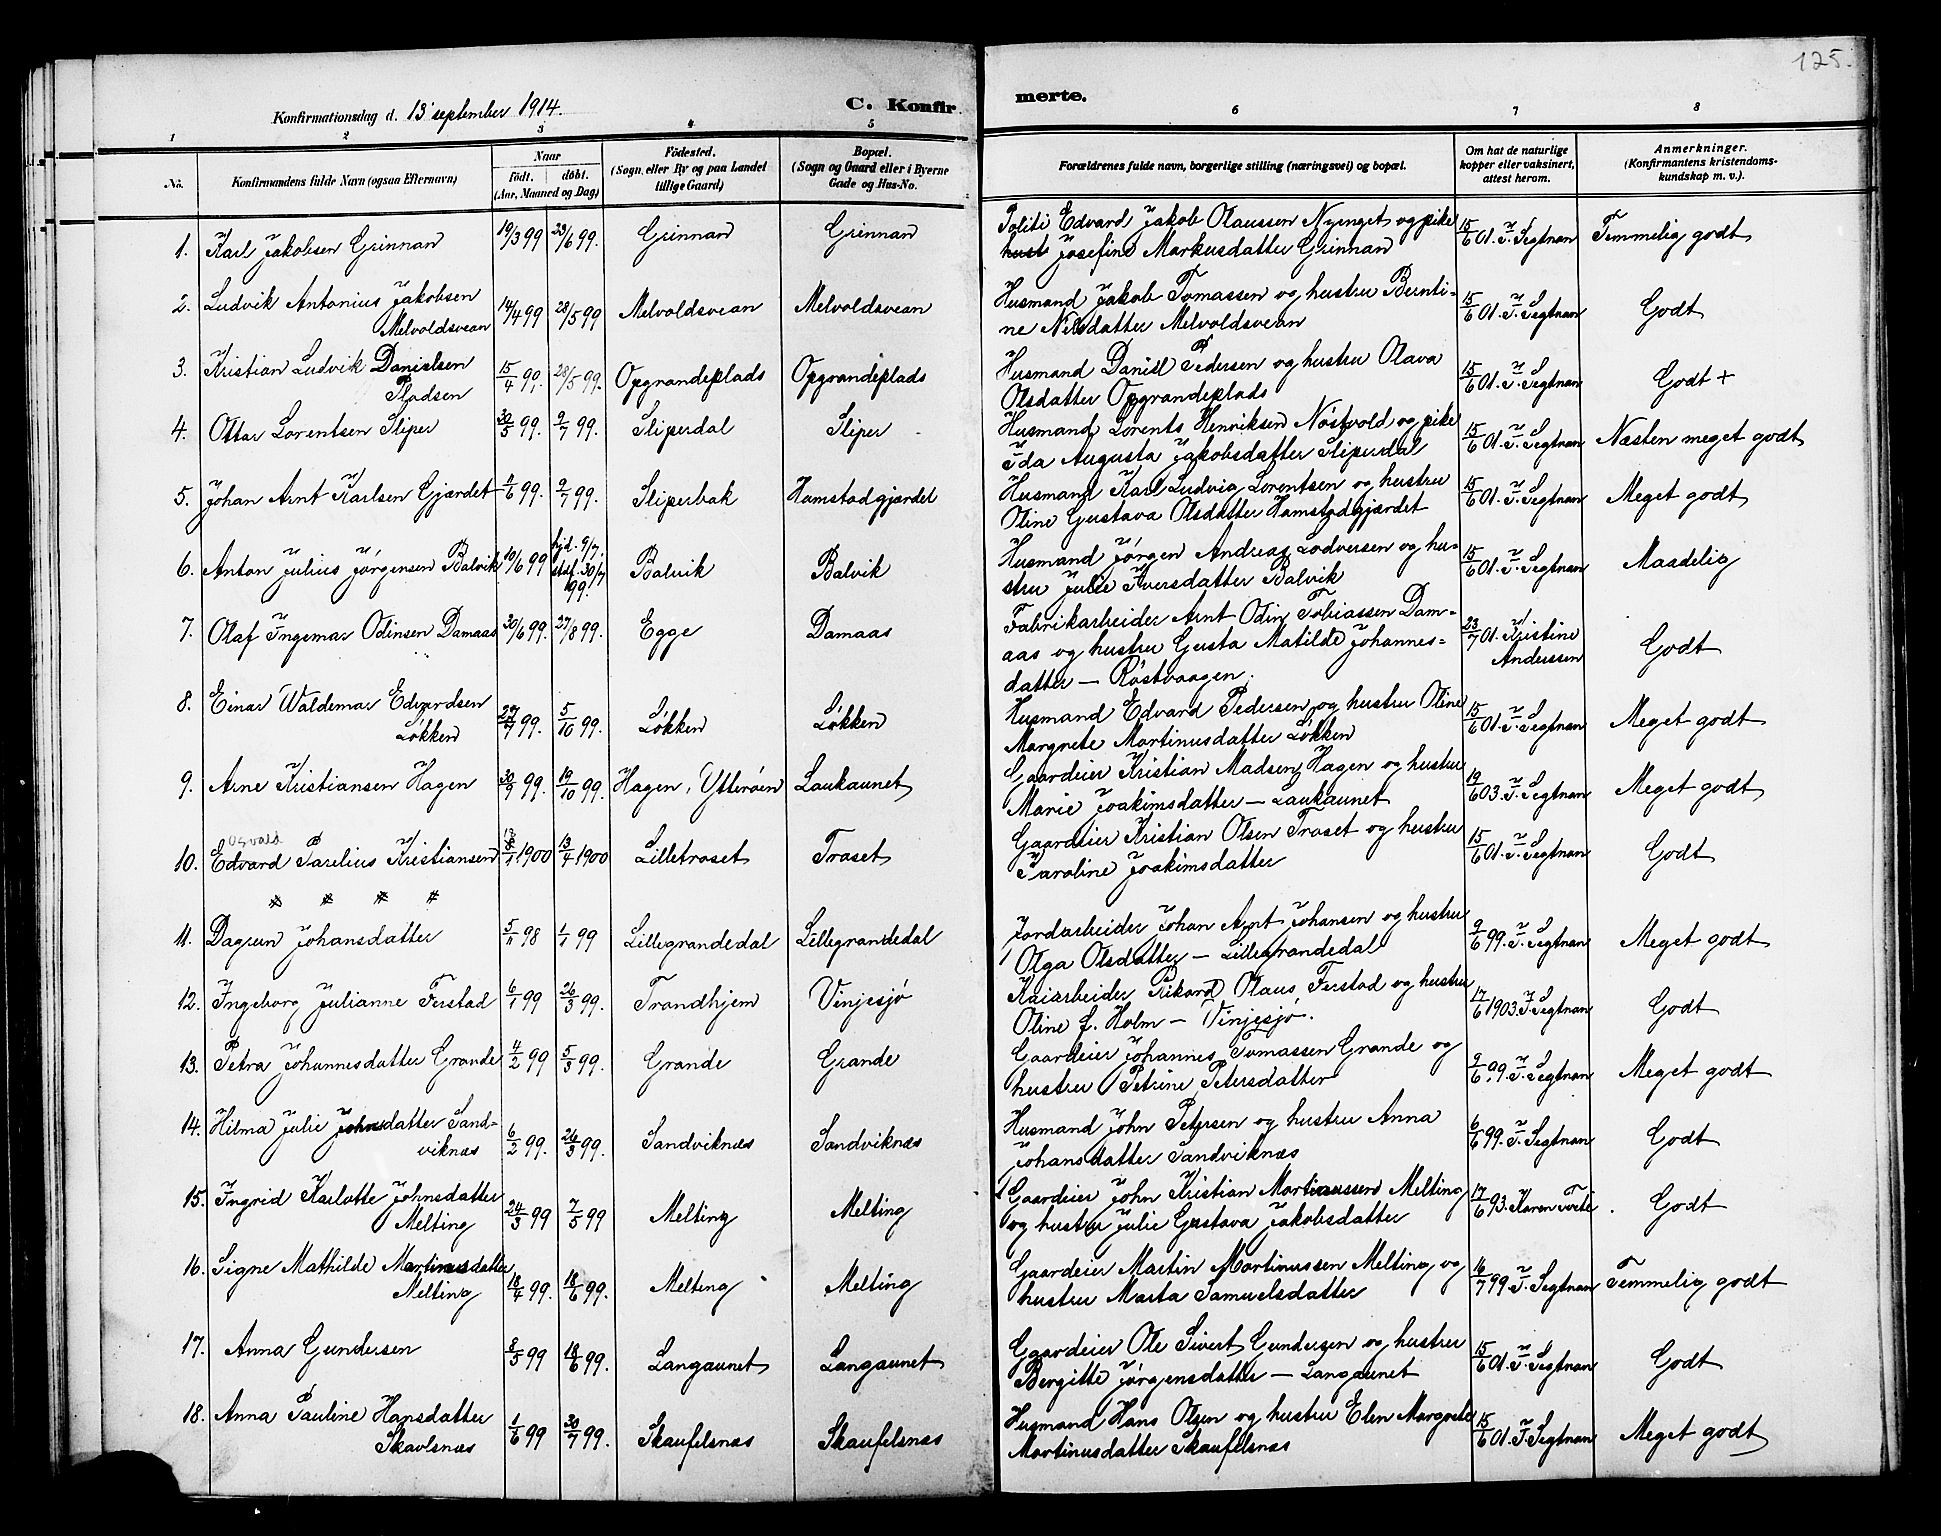 125.
Konfirmationsdag d. 13 september 1914.
C. Konfir
merte.
1 2 3 4 5 6 7 8
No.
Konfirmandens fulde Navn (ogsaa Efternavn)
Naar
Født. døbt.
(Aar, Maaned og Dag)
Fødested.
(Sogn eller By og paa Landet
tillige Gaard)
Bopæl.
(Sogn og Gaard eller i Byerne
Gade og Hus-No.
Forældrenes fulde navn, borgerlige stilling (næringsvei) og bopæl.
Om hat de naturlige
kopper eller vaksinert,
attest herom.
Anmerkninger.
(Konfirmantens kristendoms-
kundskap m. v.).
1. Karl Jakobsen Grinnan 19/3 99 23/6 99. Grinnan Grinnan
Politi Edvard Jakob Olaussen Nyenget og pike
hust Josefine Markusdatter Grinnan
15/6 01. I. Segtnan Temmelig godt
2. Ludvik Antonius Jakobsen
Melvoldsvean 14/4 99 28/5 99 Melvoldsvean Melvoldsvean
Husmand Jakob Tomassen og hustru Bernti-
ne Nilsdatter Melvoldsvean
15/6 01. I. Segtnan Godt
3. Kristian Ludvik Danielsen
Pladsen 15/4 99. 28/5 99. Opgrandeplads Opgrandeplads
Husmand Daniel Pedersen og hustru Olava
Olsdatter Opgrandeplads
15/6 01. I. Segtnan Godt +
4. Ottar Lorentsen Sliper 30/5 99. 9/7 99. Sliperdal Sliper
Husmand Lorents Henriksen Nøstvold og pike
Ida Augusta Jakobsdatter Sliperdal
15/6 01. I. Segtnan Næsten meget godt
5. Johan Arnt Karlsen Gjærdet 1/6 99. 9/7 99. Sliperbak Hamstadgjærdet
Husmand Karl Ludvig Lorentsen og hustru
Oline Gustava Olsdatter Hamstadgjærdet
15/6 01. I. Segtnan Meget godt
6. Anton Julius Jørgensen Balvik 10/6 99 hjd. 9/7.
stadf. 30/7
99. Balvik Balvik
Husmand Jørgen Andreas Lodversen og hu-
stru Julie Iversdatter Balvik
15/6 01. I. Segtnan Maadelig
7. Olaf Ingemar Odinsen Damaas 30/6 99. 27/8 99. Egge Damaas
Fabrikarbeider Arnt Odin Tobiassen Dam-
aas og hustru Gusta Matilde Johannes-
datter — Røstvaagen.
23/7 01. Kristine
Anderssen Godt
8. Einar Waldemar Edvardsen
Løkken 27/7 99. 5/10 99. Løkken Løkken
Husmand Edvard Pedersen og hustru Oline
Margrete Martinusdatter Løkken
15/6 01. I. Segtnan Meget godt
9. Arne Kristiansen Hagen 30/9 99. 19/10 99. Hagen, Ytterøen Laukaunet
Gaardeier Kristian Madsen Hagen og hustru
Marie Joakimsdatter — Laukaunet
19/6 03. I. Segtnan Meget godt
Osvald
10. Edvard Parelius Kristiansen 1900 13/4 1900 Lilletraset Traset
Gaardeier Kristian Olsen Traset og hustru
Karoline Joakimsdatter
15/6 01. I. Segtnan Godt
11. Dagrun Johansdatter 5/11 98 1/1 99 Lillegrandedal Lillegrandedal
Jordarbeider Johan Arnt Johansen og hustru
Olga Olsdatter — Lillegrandedal
9/6 99. I. Segtnan Meget godt
12. Ingeborg Julianne Ferstad 6/1 99 26/3 99. Trondhjem Vinjesjø
Kaiarbeider Rikard Olaus Ferstad og hustru
Oline f. Holm — Vinjesjø.
17/6 1903. I. Segtnan Godt
13. Petra Johannesdatter Grande 4/2 99 5/3 99. Grande Grande
Gaardeier Johannes Tomassen Grande og
hustru Petrine Petersdatter
9/6 99. I. Segtnan Meget godt
14. Hilma Julie Johnsdatter Sand-
viknæs 6/2 99. 26/3 99. Sandviknæs Sandviknæs
Husmand John Petersen og hustru Anna
Johansdatter Sandviknæs
6/6 99. I. Segtnan Godt
15. Ingrid Karlotte Johnsdatter
Melting 24/3 99 7/5 99 Melting Melting
Gaardeier John Kristian Martinussen Melting
og hustru Julie Gustava Jakobsdatter
17/6 93. Karen Tvete. Godt
16. Signe Mathilde Martinusdatter
Melting 18/4 99. 18/6 99. Melting Melting
Gaardeier Martin Martinussen Melting og
hustru Marta Samuelsdatter
16/7 99. I. Segtnan Temmelig godt
17. Anna Gundersen 8/5 99 18/6 99. Langaunet Langaunet
Gaardeier Ole Sivert Gundersen og hustru
Bergitte Jørgensdatter — Langaunet
15/6 01. I. Segtnan Godt
18. Anna Pauline Hansdatter
Skavlsnæs 1/6 99 30/7 99. Skaufelsnæs Skaufelsnæs
Husmand Hans Olsen og hustru Elen Margrete
Martinusdatter Skaufelsnæs
15/6 01. I. Segtnan Meget godt